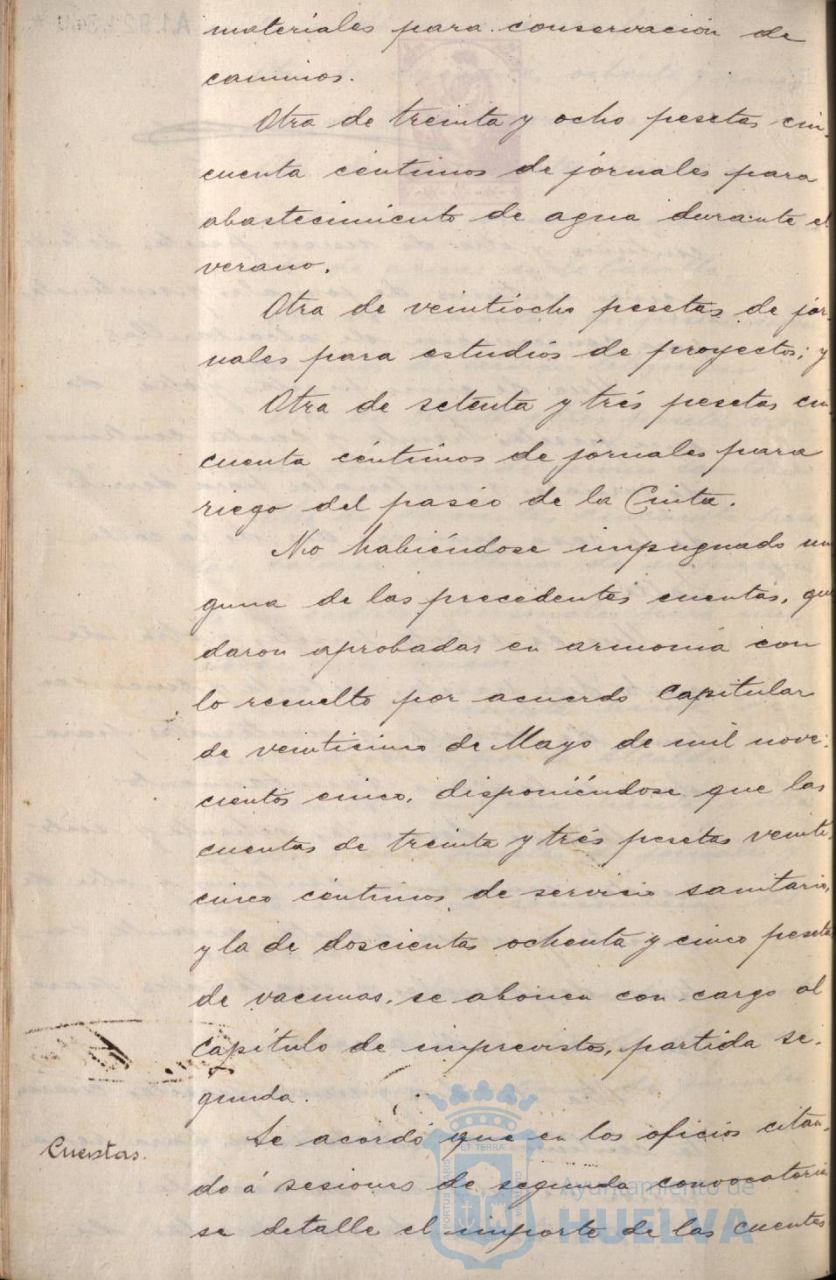 materiales para conservación de
caminos.
Otra de treinta y ocho pesetas cin-
cuenta céntimos de jórnales para
abastecimiento de agua durante el
verano.
Otra de veintiocho pesetas de jór-
nales para estudios de proyectos; y
Otra de setenta y trés pesetas cin-
cuenta céntimos de jórnales para
riego del paséo de la Cinta.
No habiéndose impugnado nin
guna de las precedentes cuentas, que
daron aprobadas en armonía con
lo resuelto por acuerdo Capitular
de veinticinco de Mayo de mil nove-
cientos cinco, disponiéndose que las
cuentas de treinta y trés pesetas veinti
cinco céntimos de servicio sanitario,
y la de doscientas ochenta y cinco pesetas
de vacunas, se abonen con cargo al
Capítulo de imprevistos, partida se-
gunda.
Cuentas.
Se acordó que en los oficios citan-
do á sesiones de segunda convocatoria
se detalle el importe de las cuentas
PORTUS MARIS ET TERRAE CUSTODIA
Ayuntamiento de
HUELVA